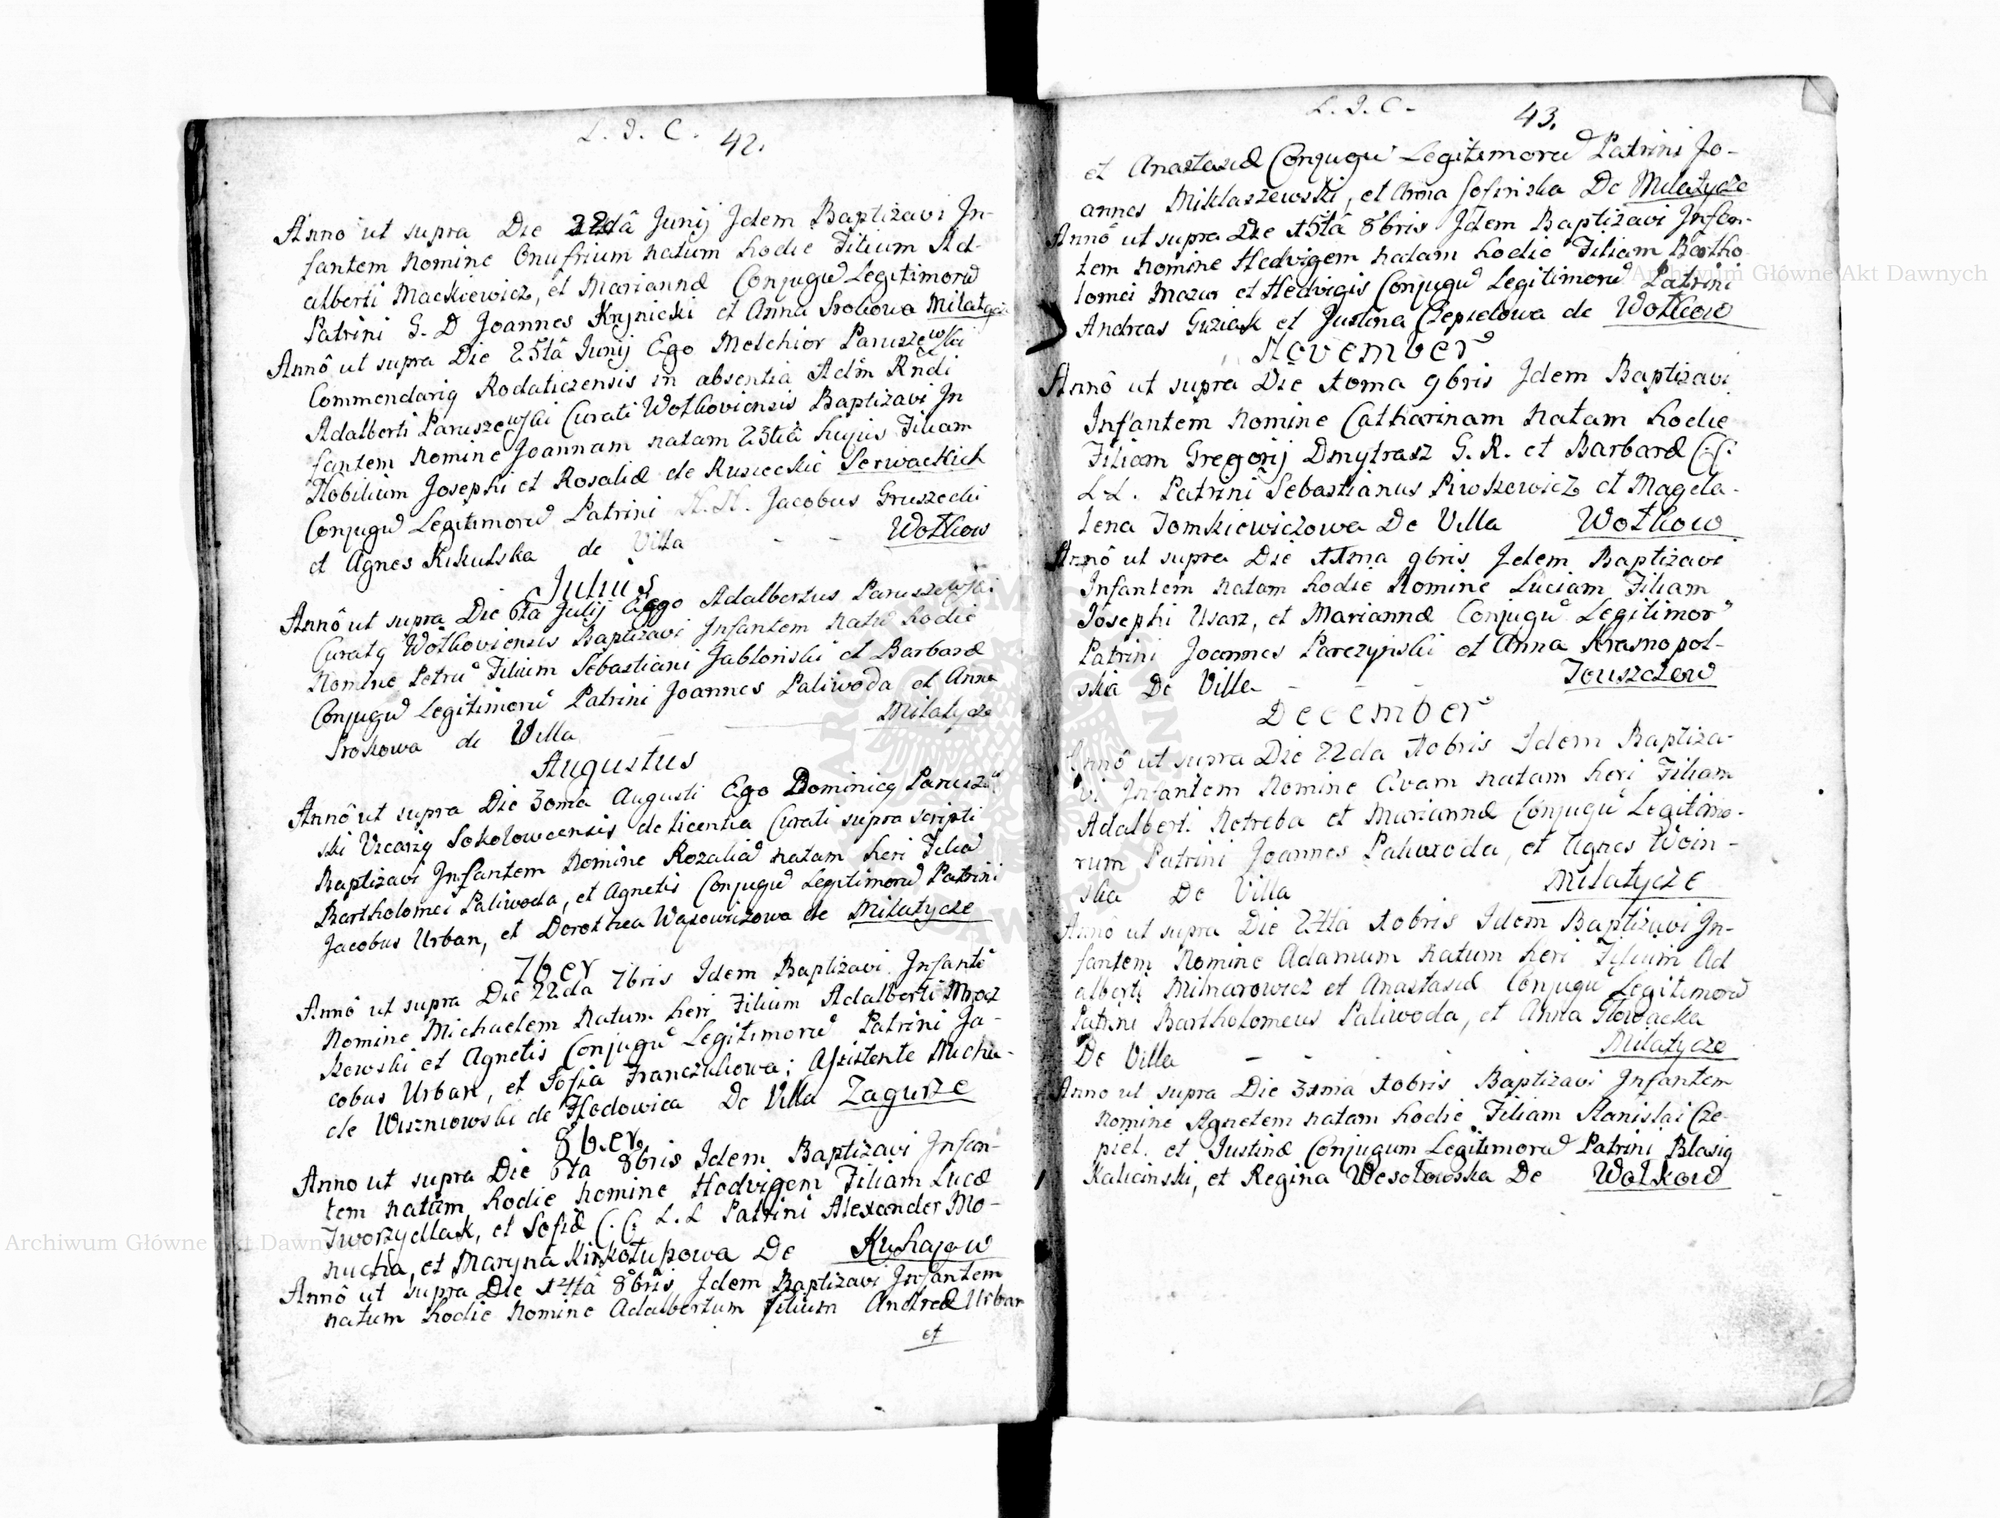 L. J. C.
42.
Annô ut supra Die 22dâ Junij Idem Baptizavi In-
fantem Nomine Onufrium natum hodie Filium Ad-
alberti Mackiewicz, et Mariannæ Conjugũ Legitimorũ
Patrini G. D Joannes Krynicki et Anna Srokowa Milatycze
Annô ut supra Die 25tâ Junij Ego Melchior Paruszewski
Commendariq Rodaticzensis in absentia Adm Rndi
Adalberti Paruszewski Curati Wołkoviensis Baptizavi In
fantem Nomine Joannam natam 23tiâ hujus Filiam
Nobilium Josephi et Rosaliæ de Rusieckie Serwackich
Conjugũ Legitimorũ Patrini N. N. Jacobus Gruszecki
et Agnes Kikulska de Villa - - Wołkow
Julius
Annô ut supra Die 6ta Julij Ego Adalbertus Paruszewski
Curatq Wołkoviensis Baptizavi Infantem natũ hodie
Nomine Petrũ Filium Sebastiani Jabłoński et Barbaræ
Conjugũ Legitimorũ Patrini Joannes Paliwoda et Anna
Srokowa de Villa Milatycze
Augustus
Annô ut supra Die 30ma Augusti Ego Dominicq Parusze
ski Vicariq Sokołowcensis de licentia Curati supra scripti
Baptizavi Infantem Nomine Rozaliã natam heri Filiã
Bartholomei Paliwoda, et Agnetis Conjugũ Legitimorũ Patrini
Jacobus Urban, et Dorothea Wąsowiczowa de Milatycze
7b.er
Annô ut supra Die 22da 7bris Idem Baptizavi Infantẽ
Nomine Michaelem Natum heri Filium Adalberti Mrocz
kowski et Agnetis Conjugũ Legitimorũ Patrini Ja-
cobus Urban, et Sofia Franczukowa; Assistente Micha-
de Wiszniowski de Hodowica De Villa Zagurze
8b.er
Anno ut supra Die 6ta 8bris Idem Baptizavi Infan-
tem natam hodie Nomine Hedvigem Filiam Lucæ
Tworzydlak, et Sofiæ C. C. L. L Patrini Alexander Mo-
nucha, et Maryna Kinkołupowa De Kuhajow
Annô ut supra Die 14tâ 8bris Idem Baptizavi Infantem
natum hodie Nomine Adalbertum filium Andreæ Urban
et
L. J. C.
43.
et Anastasiæ Conjugũ Legitimorũ Patrini Jo-
annes Miklaszewski, et Anna Sofińska De Milatycze
Annô ut supra Die 15tâ 8bris Idem Baptizavi Infan-
tem Nomine Hedvigem natam hodie Filiam Bartho
lomei Mazur et Hedvigis Conjugũ Legitimorũ Patrini
Andreas Guziak et Justina Czepielowa de Wołkow
November
Annô ut supra Die 10ma 9bris Idem Baptizavi
Infantem Nomine Catharinam Natam hodie
Filiam Gregorij Dmytrasz G. R. et Barbaræ C. C.
L L. Patrini Sebastianus Piwszewicz et Magda-
lena Tomkiewiczowa De Villa Wołkow
Annô ut supra Die 11ma 9bris Idem Baptizavi
Infantem natam hodie Nomine Luciam Filiam
Josephi Usarz, et Mariannæ Conjugũ Legitimor
Patrini Joannes Parczyński et Anna Krasnopol-
ska De Villa - - - Touszczow
December
Annô ut supra Die 22da Xbris Idem Baptiza-
vi Infantem Nomine Evam natam heri Filiam
Adalberti Netreba et Mariannæ Conjugũ Legitimo-
rum Patrini Joannes Paliwoda, et Agnes Woin-
ska De Villa Milatycze
Annô ut supra Die 24ta Xbris Idem Baptizavi In-
fantem Nomine Adamum Natum heri Filium Ad
alberti Milnarowicz et Anastasiæ Conjugũ Legitimorũ
Patrini Bartholomeus Paliwoda, et Anna Głowacka
De Villa - - - Milatycze
Anno ut supra Die 31ma Xbris Baptizavi Infantem
Nomine Agnetem natam hodie Filiam Stanislai Cze-
piel. et Justinæ Conjugum Legitimorũ Patrini Blasiq
Kalicinski, et Regina Wesołowska De Wołkow
Archiwum Główne Akt Dawnych
Archiwum Główne Akt Dawnych